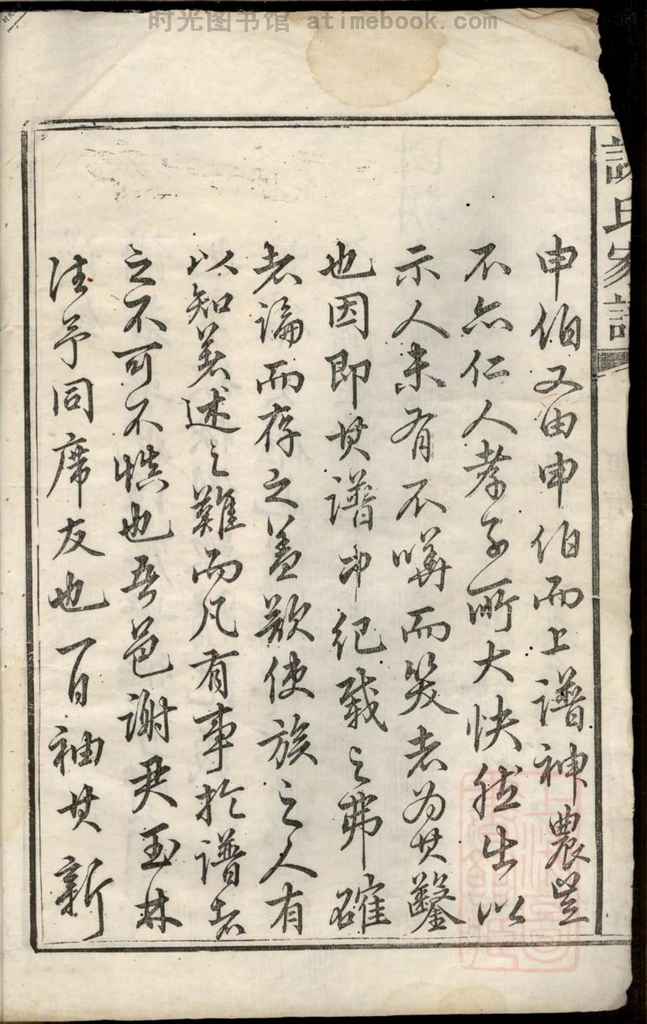 时光图书馆 atimebook.com
謝氏家譜
申伯又由申伯而上譜神農豈
不亦仁人孝子所大快然出以
示人未有不嘩而笑者為其鑿
也因即其譜中紀載之弗確
者論而存之蓋欲使族之人有
以知著述之難而凡有事於譜者
之不可不慎也吾邑謝君玉林
注予同席友也一日袖其新